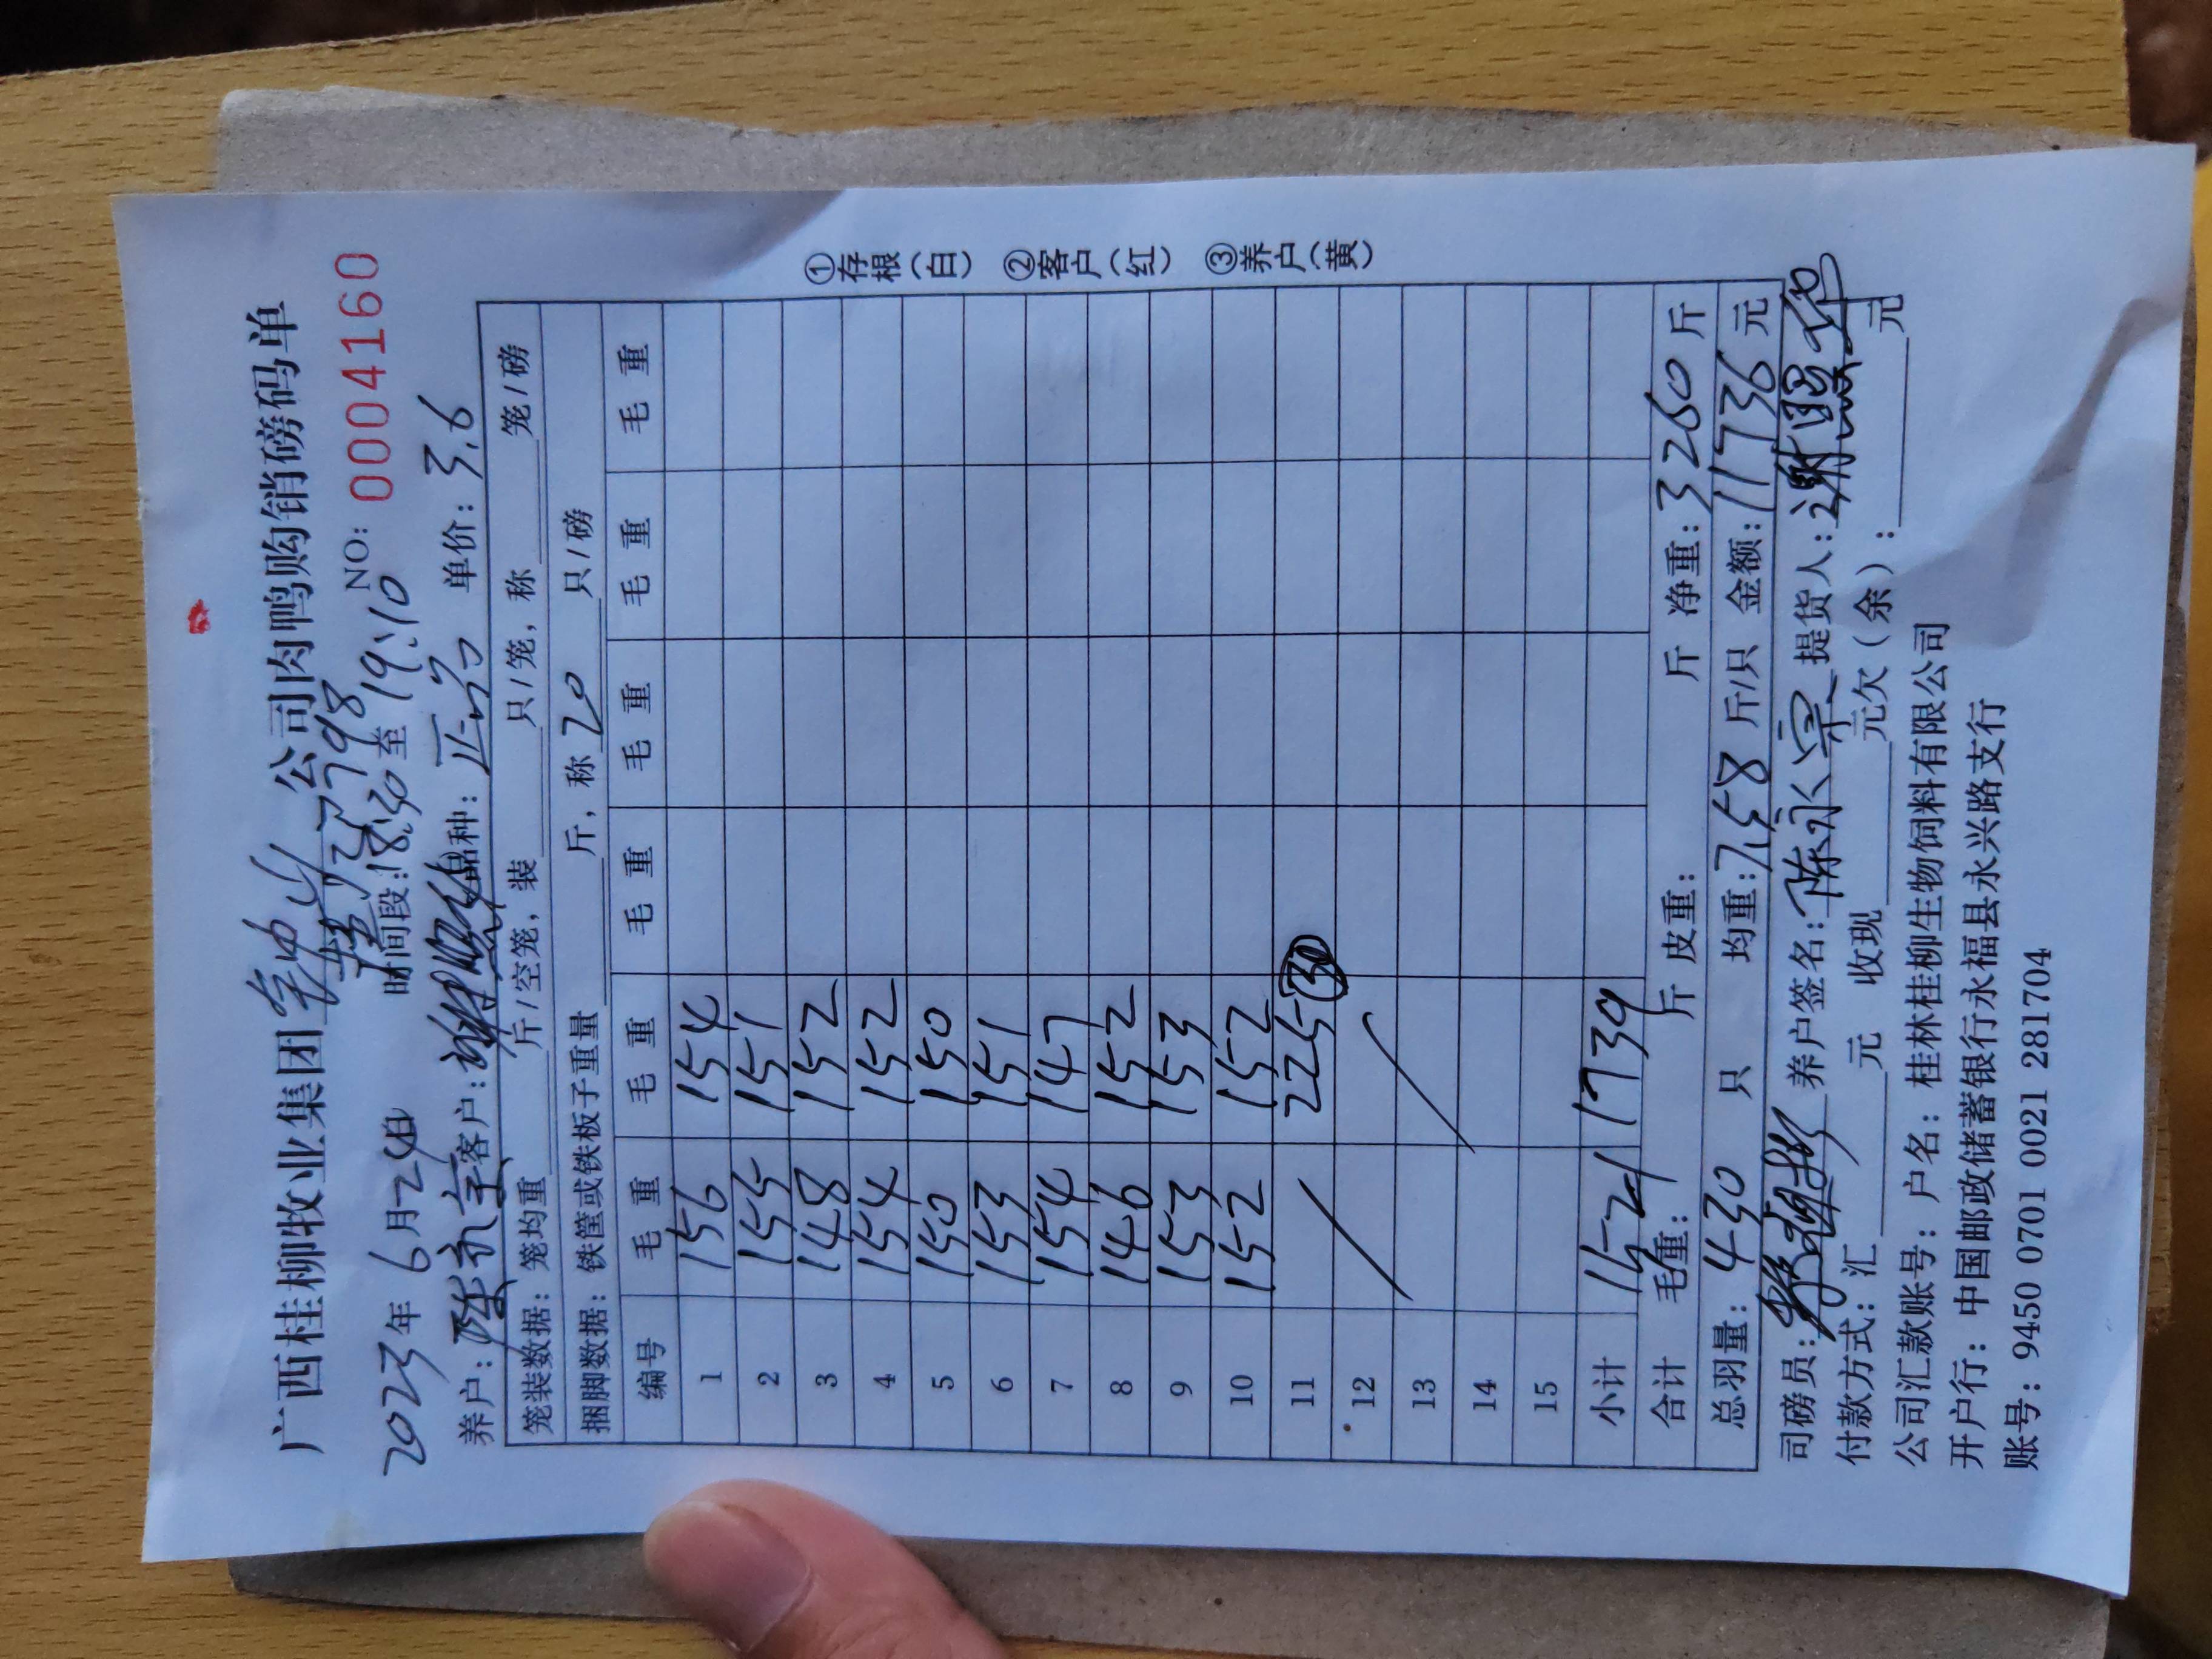 广西桂柳牧业集团钟山公司肉鸭购销磅码单
NO: 0004160
2023年 6月24日 时间段:18:30至19:10
养户: 客户: 品种: 单价: 3.6
笼装数据: 笼均重 斤/空笼, 装 只/笼, 称 笼/磅
捆脚数据: 铁筐或铁板子重量 斤, 称 20 只/磅
编号 毛重 毛重 毛重 毛重 毛重 毛重
1 156 154
2 155 151
3 148 152
4 154 152
5 150 150
6 153 151
7 154 147
8 146 152
9 153 153
10 152 152
11 225 (30)
12
13
14
15
小计 1521 1739
合计 毛重: 斤 皮重: 斤 净重: 3260 斤
总羽量: 430 只 均重: 7.58 斤/只 金额: 11736 元
司磅员: 养户签名: 陈永宗 提货人:
付款方式: 汇 元 收现 元欠(余): 元
公司汇款账号: 户名: 桂林桂柳生物饲料有限公司
开户行: 中国邮政储蓄银行永福县永兴路支行
账号: 9450 0701 0021 281704
①存根(白) ②客户(红) ③养户(黄)